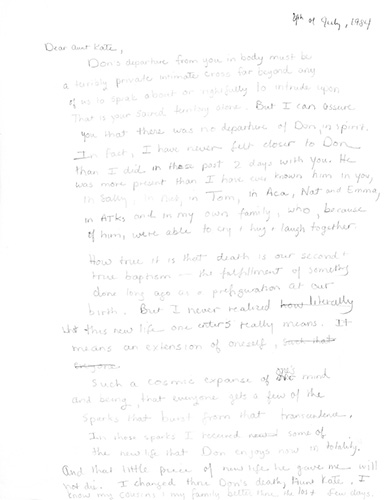 8th of July, 1984
Dear Aunt Kate,
Don's departure from you in body must be
a terribly private intimate cross far beyond any
of us to speak about or rightfully to intrude upon
That is your sacred territory alone. But I can assure
you that there was no departure of Don, in spirit.
In fact, I have never felt closer to Don
than I did in those past 2 days with you. He
was more present than I have ever known him in you,
in Sally, in Tom, in Aca, Nat and Emma,
in and in my own family, who, because
of him, were able to cry & hug & laugh together.
How true it is that death is our second &
true baptism -- the fulfillment of something
done long ago as a prefiguration at our
birth. But I never realized how literally
this new life one enters really means. It
means an extension of oneself, such that
everyone
Such a cosmic expanse of mind
and being, that everyone gets a few of the
sparks that burst from that transcendence.
In those sparks I received some of
the new life that Don enjoys now in totality.
And that little piece of new life he gave me will
not die. I changed thru Don's death, Aunt Kate. I
know my cousins & my family better due to last few days